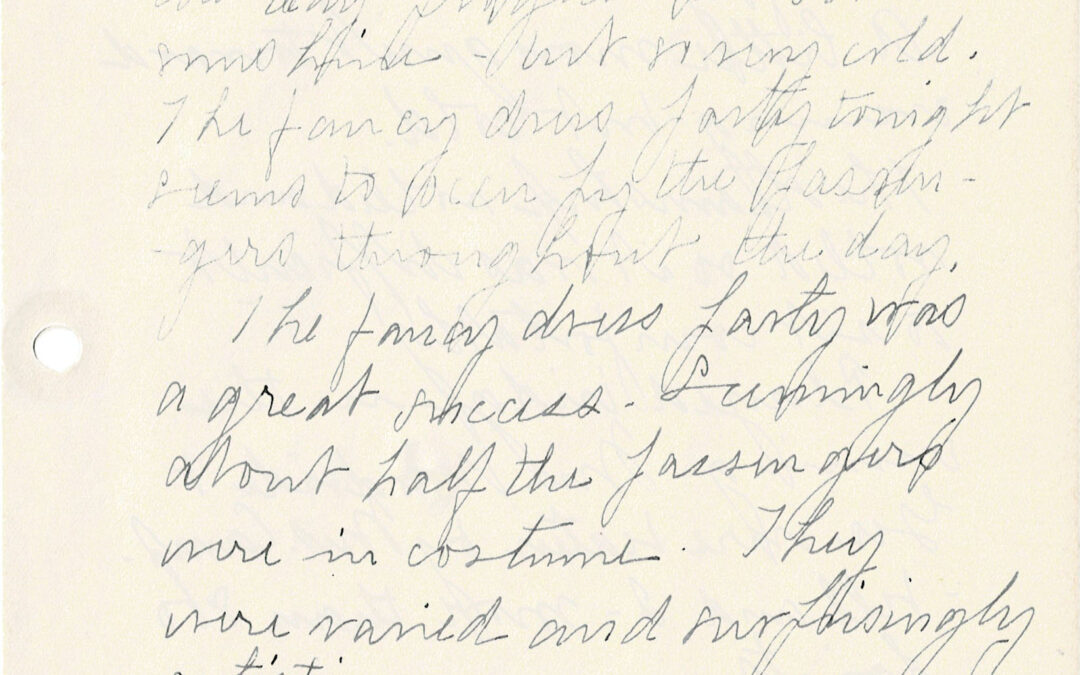 day
sunshine - but so very cold.
The fancy dress party tonight
seems to occupy the Passen-
-gers throughout the day.
The fancy dress party was
a great success - Seemingly
about half the passengers
were in costume. They
were varied and surprisingly